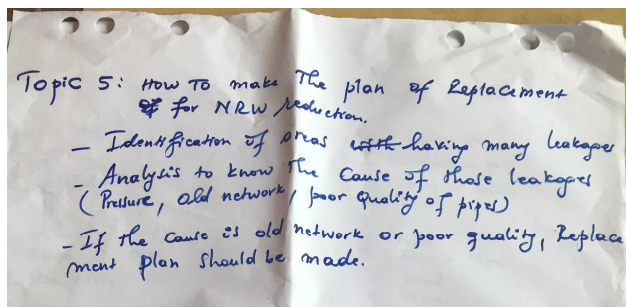 Topic 5: How To make The plan of Replacement
for NRW reduction.
- Identification of areas having many leakages
- Analysis to know The Cause of those leakages
(Pressure, old network, poor Quality of pipes)
- If the cause is old network or poor quality, Replace
ment plan should be made.